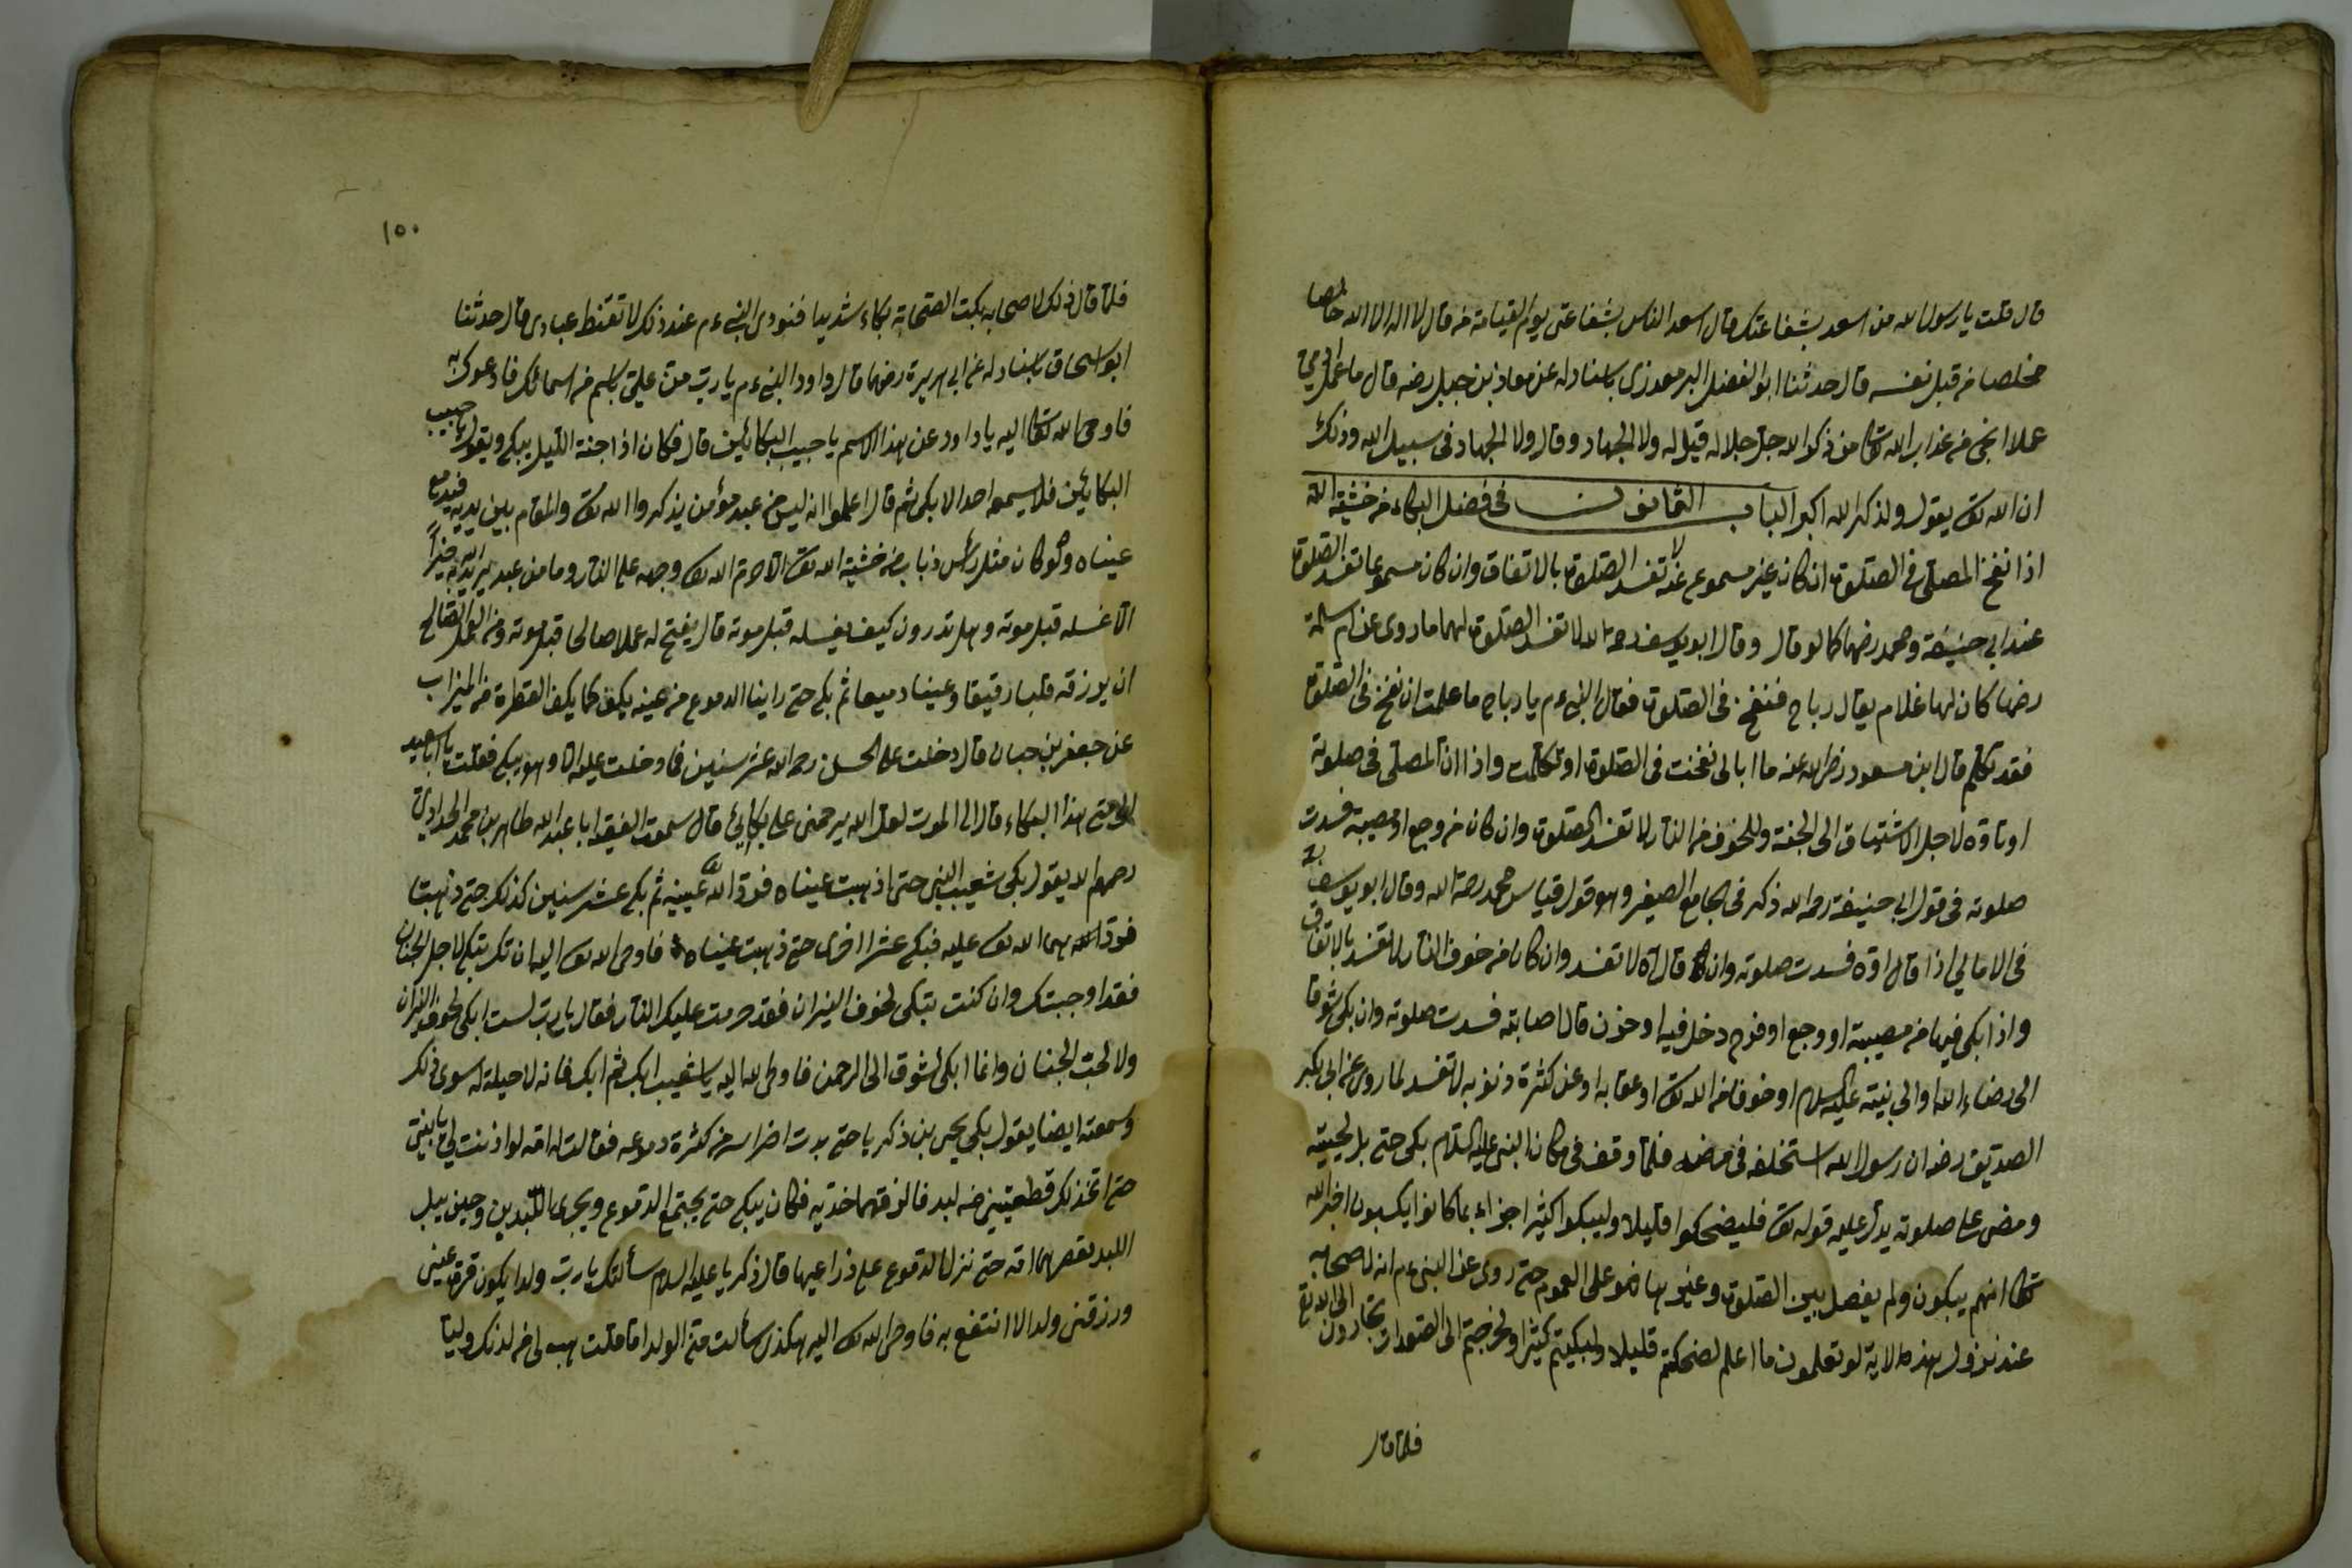 قال قلت يا رسول الله من اسعد بشفاعتك قال اسعد الناس بشفاعتى يوم القيامة من قال لا اله الا الله خالصا
مخلصا من قبل نفسه قال حدثنا ابو الفضل باسناد له عن معاذ بن جبل رضه قال ما عمل آدمي
عملا انجى من عذاب الله تعا من ذكر الله جل جلاله قيل له ولا الجهاد وقال ولا الجهاد فى سبيل الله وذلك
ان الله تعـ يقول ولذكر الله اكبر الباب الثانون فى فضل البكاء من خشية الله
اذا نفخ المصلى فى الصلوة ان كان غير مسموع لا تفسد الصلوة بالاتفاق وان كان مسموعا تفسد الصلوة
عند ابى حنيفة ومحمد رضهما كما لو قال وقال ابو يوسف رحمه الله لا تفسد الصلوة لهما ما روى عن ام سلمة
رضها كان لها غلام يقال رباح فنفخ فى الصلوة فقال النبى عم يا رباح ما علمت ان نفخ فى الصلوة
فقد تكلم قال ابن مسعود رضى الله عنه ما ابالى نفخت فى الصلوة او تكلمت واذا ان المصلى فى صلوته
او تاوه لاجل الاشتياق الى الجنة وللخوف من النار لا تفسد الصلوة وان كان من وجع او مصيبة فسدت
صلوته فى قول ابى حنيفة رحمه الله ذكر فى الجامع الصغير وهو قول قياس محمد رحمة الله وقال ابو يوسف
فى الامالى اذا قال اوه فسدت صلوته وان قال آه لا تفسد وان كان من خوف النار لا تفسد بالاتفاق
واذا بكى فيها من مصيبة او وجع او فرح دخل فيه او حزن قال اصابته فسدت صلوته وان بكى شوقا
الى رضاء الله او الى نبيّه عليه السلام او خوفا من الله تعـ او عقابه او عن كثرة ذنوبه لا تفسد لما روى عن ابى بكر
الصديق رضه ان رسول الله استخلفه فى مرضه فلما وقف فى مكان النبى عليه السلام بكى حتى بل لحيته
ومضى على صلوته يدل عليه قوله تعـ فليضحكوا قليلا وليبكوا كثيرا جزاء بما كانوا يكسبون اخبر الله
تعا انهم يبكون ولم يفصل بين الصلوة وغيرها فهو على العموم حتى روى عن النبى عم انه لاصحابه
عند نزول هذه الاية لو تعلمون ما اعلم لضحكتم قليلا ولبكيتم كثيرا ولخرجتم الى الصعدات تجارون الى الله تع
فلما قال
١٥٠
فلما قال ذلك لاصحابه بكت الصحابة بكاء شديدا فنودى النبى عم عند ذلك لا تقنط عبادى قال حدثنا
ابو اسحاق باسناد له عن ابى هريرة رضهما قال داود النبى عم يا رب من على باسم من اسمائك فادعوك به
فاوحى الله تعا اليه يا داود عن هذا الاسم يا حبيب البكائين قال فكان اذا جنه الليل يبكى ويقول يا حبيب
البكائين فلا يسمعه احد الا بكى ثم قال اعلموا انه ليس من عبد مؤمن يذكروا الله تعـ والمقام بين يديه فتدمع
عيناه ولو كان مثل رأس ذباب من خشية الله تعـ الا حرم الله تعـ وجهه على النار وما من عبد يريد الله به خيرًا
الا غسله قبل موته وهل تدرون كيف يغسله قبل موته قال يفتح له عملا صالحا قبل موته ومن العمل الصالح
ان يرزقه قلبا رقيقا وعينا دميعا ثم بكى حتى راينا الدموع من عينه يكف كما يكف القطرة من الميزاب
عن جعفر بن حبان قال دخلت على الحسن رحمه الله عشر سنين فما دخلت عليه الا وهو يبكى فقلت يا ابا سعيد
الى متى هذا البكاء قال الى الموت لعل الله يرحمنى على بكائى قال سمعت الفقيه ابا عبد الله طاهر بن محمد الحدادى
رحمهم الله يقول بكى شعيب النبى حتى اذهبت عيناه فرد الله عينيه ثم بكى عشر سنين كذلك حتى ذهبتا
فردّهما الله تعـ عليه فبكى عشرا اخرى حتى ذهبت عيناه فاوحى الله تعـ اليه ان تك تبكى لاجل الجنان
فقد اوجبتك وان كنت تبكى لخوف النيران فقد حرمت عليك النار فقال يا رب لست ابكى لخوف النيران
ولا لحب الجنان وانما ابكى لشوق الى الرحمن فاوحى الله اليه يا شعيب ابك ثم ابك فانه لا حيلة له سوى ذلك
وسمعته ايضا يقول بكى يحيى بن ذكريا حتى بدت اضراسه من كثرة دموعه فقالت له امه لو اذنت لى يا بنى
حتى اتخذ لك قطعتين من لبد فالزقهما خديه فكان يبكى حتى يجتمع الدموع ويجرى اللبدين وحين يبل
اللبد تعصرهما امه حتى نزل الدموع على ذراعيها قال ذكريا عليه السلام سألتك يا رب ولدا يكون قرة عينى
ورزقتنى ولدا لا انتفع به فاوحى الله تعـ اليه هكذى سألت متى الولد اما قلت هب لى من لدنك وليا